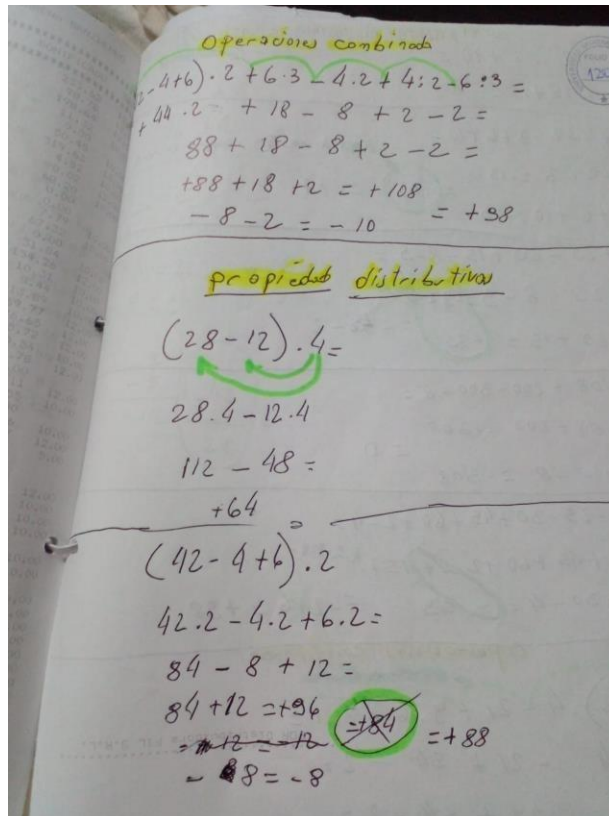 Operaciones combinada
- 4+6) · 2 + 6·3 - 4·2 + 4:2 - 6:3 =
+44·2 + 18 - 8 + 2 - 2 =
88 + 18 - 8 + 2 - 2 =
+88 + 18 + 2 = +108
- 8 - 2 = - 10 = +98
propiedad distributiva
(28 - 12) · 4 =
28·4 - 12·4
112 - 48 =
+64
=
(42 - 4 + 6) · 2
42·2 - 4·2 + 6·2 =
84 - 8 + 12 =
84 + 12 = +96 =+84 = +88
- 12 = -12
- 8 = -8